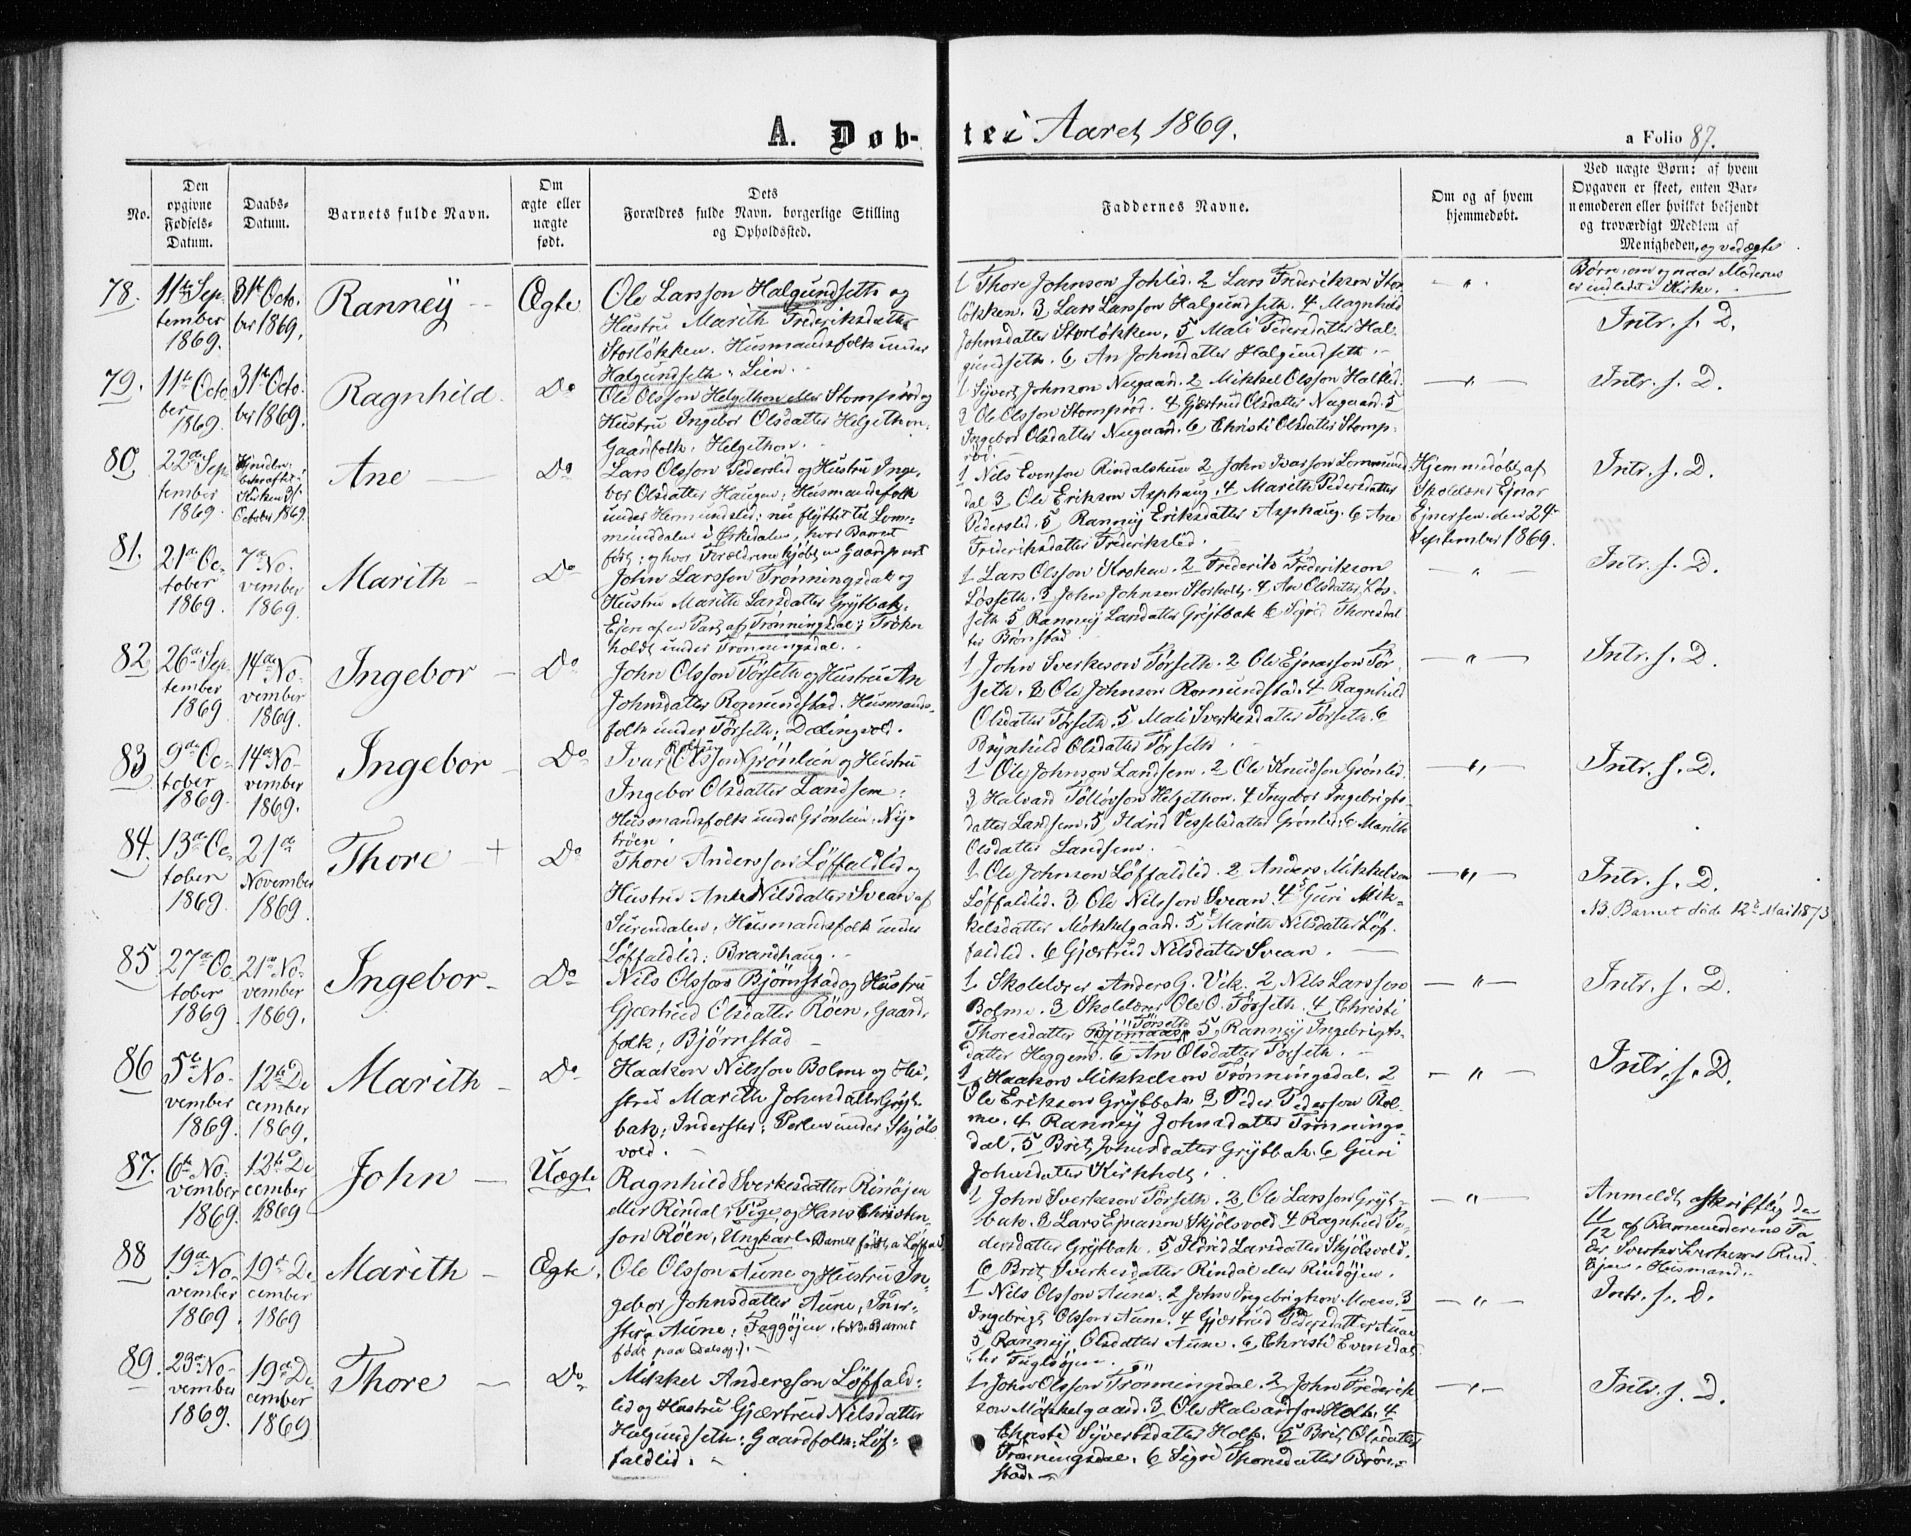 A. Døb- te i Aaret 1869.
a Folio 87.
No.
Den opgivne Fødsels-Datum.
Daabs-Datum.
Barnets fulde Navn.
Om ægte eller uægte født.
Dets Forældres fulde Navn, borgerlige Stilling og Opholdssted.
Faddernes Navne.
Om og af hvem hjemmedøbt.
Ved uægte Børn: af hvem
Opgaven er skeet, enten Bar-
nemoderen eller hvilket beljendt
og troværdigt Medlem af
Menigheden, og ved ægte
Børn, om og naar Moderen
er indledet i Kirke.
78.
11te Sep
tember
1869.
31te Octo
ber 1869.
Ranney
Ægte
Ole Larsson Halgundseth og
Hustru Marith Frederiksdatter
Storløkken. Husmandsfolk under
Halgundseth: Lien.
1 Thore Johnson Johlid. 2 Lars Frederikson Stor
løkken. 3 Lars Larsson Halgundseth. 4 Magnhild
Johnsdatter Storløkken. 5 Mali Pedersdatter Hal-
gundseth. 6 An Johnsdatter Halgundseth.
Intr. s. D.
79.
11te Octo
ber
1869.
31te Octo
ber 1869.
Ragnhild
Do
Ole Olsson Helgethon eller Stomprød og
Hustru Ingebor Olsdatter Helgethon.
Gaardfolk. Helgethon.
1 Syvert Johnson Nergaard. 2 Mikkel Olsson Halklid.
3 Ole Olsson Stomprød. 4 Gjærtrud Olsdatter Nergaard. 5
Ingebor Olsdatter Nergaard. 6 Christi Olsdatter Stomp-
rød.
Intr. s. D.
80.
22de Sep
tember
1869.
Kirken 31te
October 1869.
Ane
Do
Lars Olsson Pederslid og Hustru Inge-
bor Olsdatter Haugen: Husmandsfolk
under Hermundslid: nu flyttet til Lom-
munddalen i Ørkedalen, hvor Barnet
født: og hvor Forældrene kjøbt en Gaardpart
1 Nils Evenson Rindalshuus 2 John Ivarsson Lommund
dal 3 Ole Erikson Asphaug. 4 Marith Pedersdatter
Pederslid. 5 Ranney Eriksdatter Asphaug. 6 Ane
Frederiksdatter Frederikslid.
Hjemmedøbt af
Skolelærer Ejnar
Ejnersen den 24de
September 1869.
Intr. s. D.
81.
21de Oc-
tober
1869.
7de No-
vember
1869.
Marith
Do
John Larsson Trønningsdal og
Hustru Marith Larsdatter Grytbak.
Ejere af en Part af Trønningsdal:
holdt under Trønningsdal.
1 Lars Olsson Kroken. 2 Frederik Frederikson
Løsseth. 3 John Johnson Storholt. 4 An Olsdatter Løs-
seth 5 Ranney Larsdatter Grytbak 6 Sigrid Thoresdat
ter Brønstad
Intr. s. D.
82
26de Sep
tember
1869
14de No-
vember
1869.
Ingebor
Do
John Olsson Tørseth og Hustru An
Johnsdatter Romundstad. Husmands-
folk under Tørseth: Dølingvold.
1 John Sverkeson Tørseth. 2 Ole Ejnarsson Tør-
seth. 3 Ole Johnson Romundstad. 4 Ragnhild
Olsdatter Tørseth. 5 Mali Sverkesdatter Tørseth. 6
Brynhild Olsdatter Tørseth
Intr. s. D.
83
9de Oc-
tober
1869.
14de No-
vember
1869.
Ingebor
Do
Ivar Olsson Grønlien og Hustru
Ingebor Olsdatter Landsem:
Husmandsfolk under Grønlien: Ny-
trøen.
1 Ole Johnson Landsem. 2 Ole Knudson Grønlid.
3 Halvard Tølløvson Helgethon. 4 Ingebor Ingebrigts-
datter Landsem. 5 Ildrid Vesselsdatter Grønlid. 6 Marith
Olsdatter Landsem.
Intr. s. D.
84.
13de Oc-
tober
1869.
21de
November
1869.
Thore +
Do
Thore Andersson Løffaldlid og
Hustru Ane Nilsdatter Svean af
Surendalen. Husmandsfolk under
Løffaldlid: Brandhaug.
1 Ole Johnson Løffaldlid. 2 Anders Mikkelson
Løffaldlid. 3 Ole Nilsson Svean. 4 Guri Mik-
kelsdatter Møkkelgaard. 5 Marith Nilsdatter Løf-
faldlid. 6 Gjærtrud Nilsdatter Svean.
Intr. s. D.
NB. Barnet døde 12te Mai 1873.
85
27de Oc
tober
1869
21de No-
vember
1869.
Ingebor
Do
Nils Olsson Bjørnstad og Hustru
Gjærtrud Olsdatter Røen. Gaard-
folk: Bjørnstad
1 Skolelærer Anders G. Vik. 2 Nils Larsson
Bolme. 3 Skolelærer Ole O. Tørseth. 4 Christi
Thoresdatter Tørseth 5, Ranney Ingebrigts-
datter Heggem. 6 An Olsdatter Tørseth.
Intr. s. D.
86
5te No-
vember
1869.
12te De
cember
1869.
Marith
Do
Haakon Nilsson Bolme og Hu-
stru Marith Johnsdatter Gryt-
bak: Inderster: Perlen under Skjøls
vold.
1 Haakon Mikkelson Trønningsdal. 2
Ole Erikson Grytbak 3 Peder Pederson Bol-
me. 4 Ranney Johnsdatter Trønnings-
dal. 5 Brit Johnsdatter Grytbak. 6 Guri
Johnsdatter Kirkholt.
Intr. s. D.
87.
6te No-
vember
1869.
12te De
cember
1869
John
Uægte
Ragnhild Sverkesdatter Rinøjen
eller Rindal: Pige og Hans Christen-
son Røen, Ungkarl. Barnet født paa Løffald
1 John Sverkeson Tørseth. 2 Ole Larsson Gryt-
bak. 3 Lars Ejnarson Skjølsvold 4 Ragnhild Pe-
dersdatter Grytbak. 5 Ildrid Larsdatter Skjølsvold.
6 Brit Sverkesdatter Rindal eller Rindøjen.
Anmeldt skriftlig den
11/12 af Barnemoderens Fa-
der Sverke Sverkesen Rind-
Ejen. Husmand.
88
19de No-
vember
1869.
19de De
cember
1869
Marith
Ægte.
Ole Olsson Aune og Hustru In-
gebor Johnsdatter Aune, Inder-
ster: Aune: Faggøjen. (NB. Barnet
født paa Dalsøg).
1 Nils Olsson Aune. 2 John Ingebrigtson Moen. 3
Ingebrigt Olsson Aune. 4 Gjærtrud Pedersdatter Aune
5 Ranney Olsdatter Aune. 6 Christi Evensdat
ter Fuglsøjen.
Intr. s. D.
89.
23de No-
vember
1869.
19de De-
cember
1869
Thore
Do
Mikkel Andersson Løffald-
lid og Hustru Gjærtrud Nilsdatter
Halgundseth: Gaardfolk: Løf-
faldlid.
1 John Olsson Trønningsdal. 2 John Frederik
son Møkkelgaard. 3 Ole Halvardson Holt. 4
Christi Syvertsdatter Holt. 5 Brit Olsdatter
Trønningsdal. 6 Sigrid Thoresdatter Brøn-
stad.
Intr. s. D.